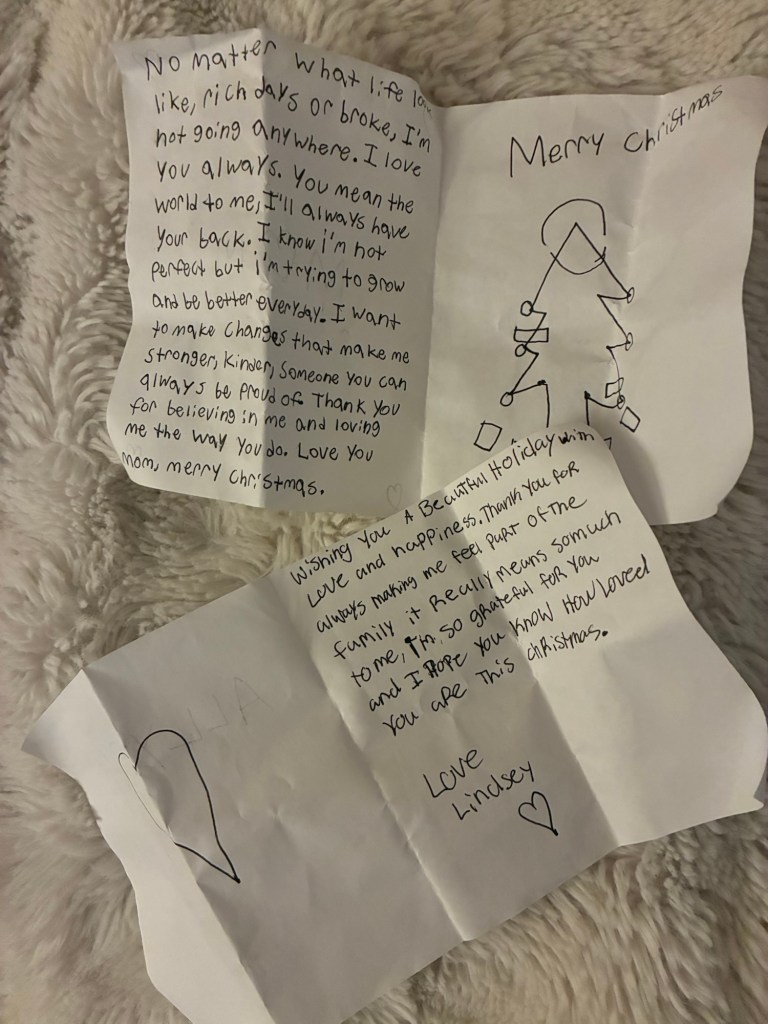 No matter what life
like, rich days or broke, I'm
not going anywhere. I love
you always. You mean the
world to me, I'll always have
your back. I know i'm not
perfect but i'm trying to grow
and be better everyday. I want
to make changes that make me
stronger, kinder, someone you can
always be proud of. Thank you
for believing in me and loving
me the way you do. Love you
mom, merry christmas.
Merry christmas
Wishing you A Beautiful Holiday with
Love and happiness. Thank you for
always making me feel part of the
family it Really means somuch
to me, I'm so grateful for you
and I Hope you know How loved
you are This christmas.
Love
Lindsey